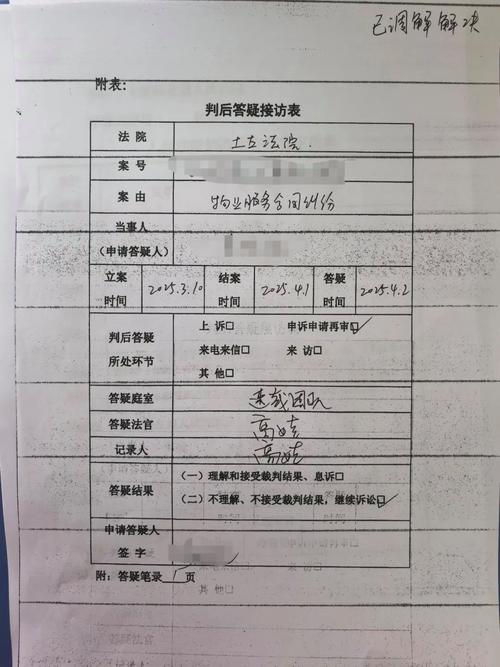 已调解解决
附表：
判后答疑接访表
法院 土左法院.
案号
案由 物业服务合同纠纷
当事人
（申请答疑人）
立案时间 2025.3.10 结案时间 2025.4.1 答疑时间 2025.4.2
判后答疑所处环节 上诉□ 申诉申请再审□✓
来电来信□ 来访□
其他□
答疑庭室 速裁团队
答疑法官 高娃
记录人 高娃
答疑结果 （一）理解和接受裁判结果、息诉□
（二）不理解、不接受裁判结果，继续诉讼□✓
申请答疑人
签字
附：答疑笔录 1 页